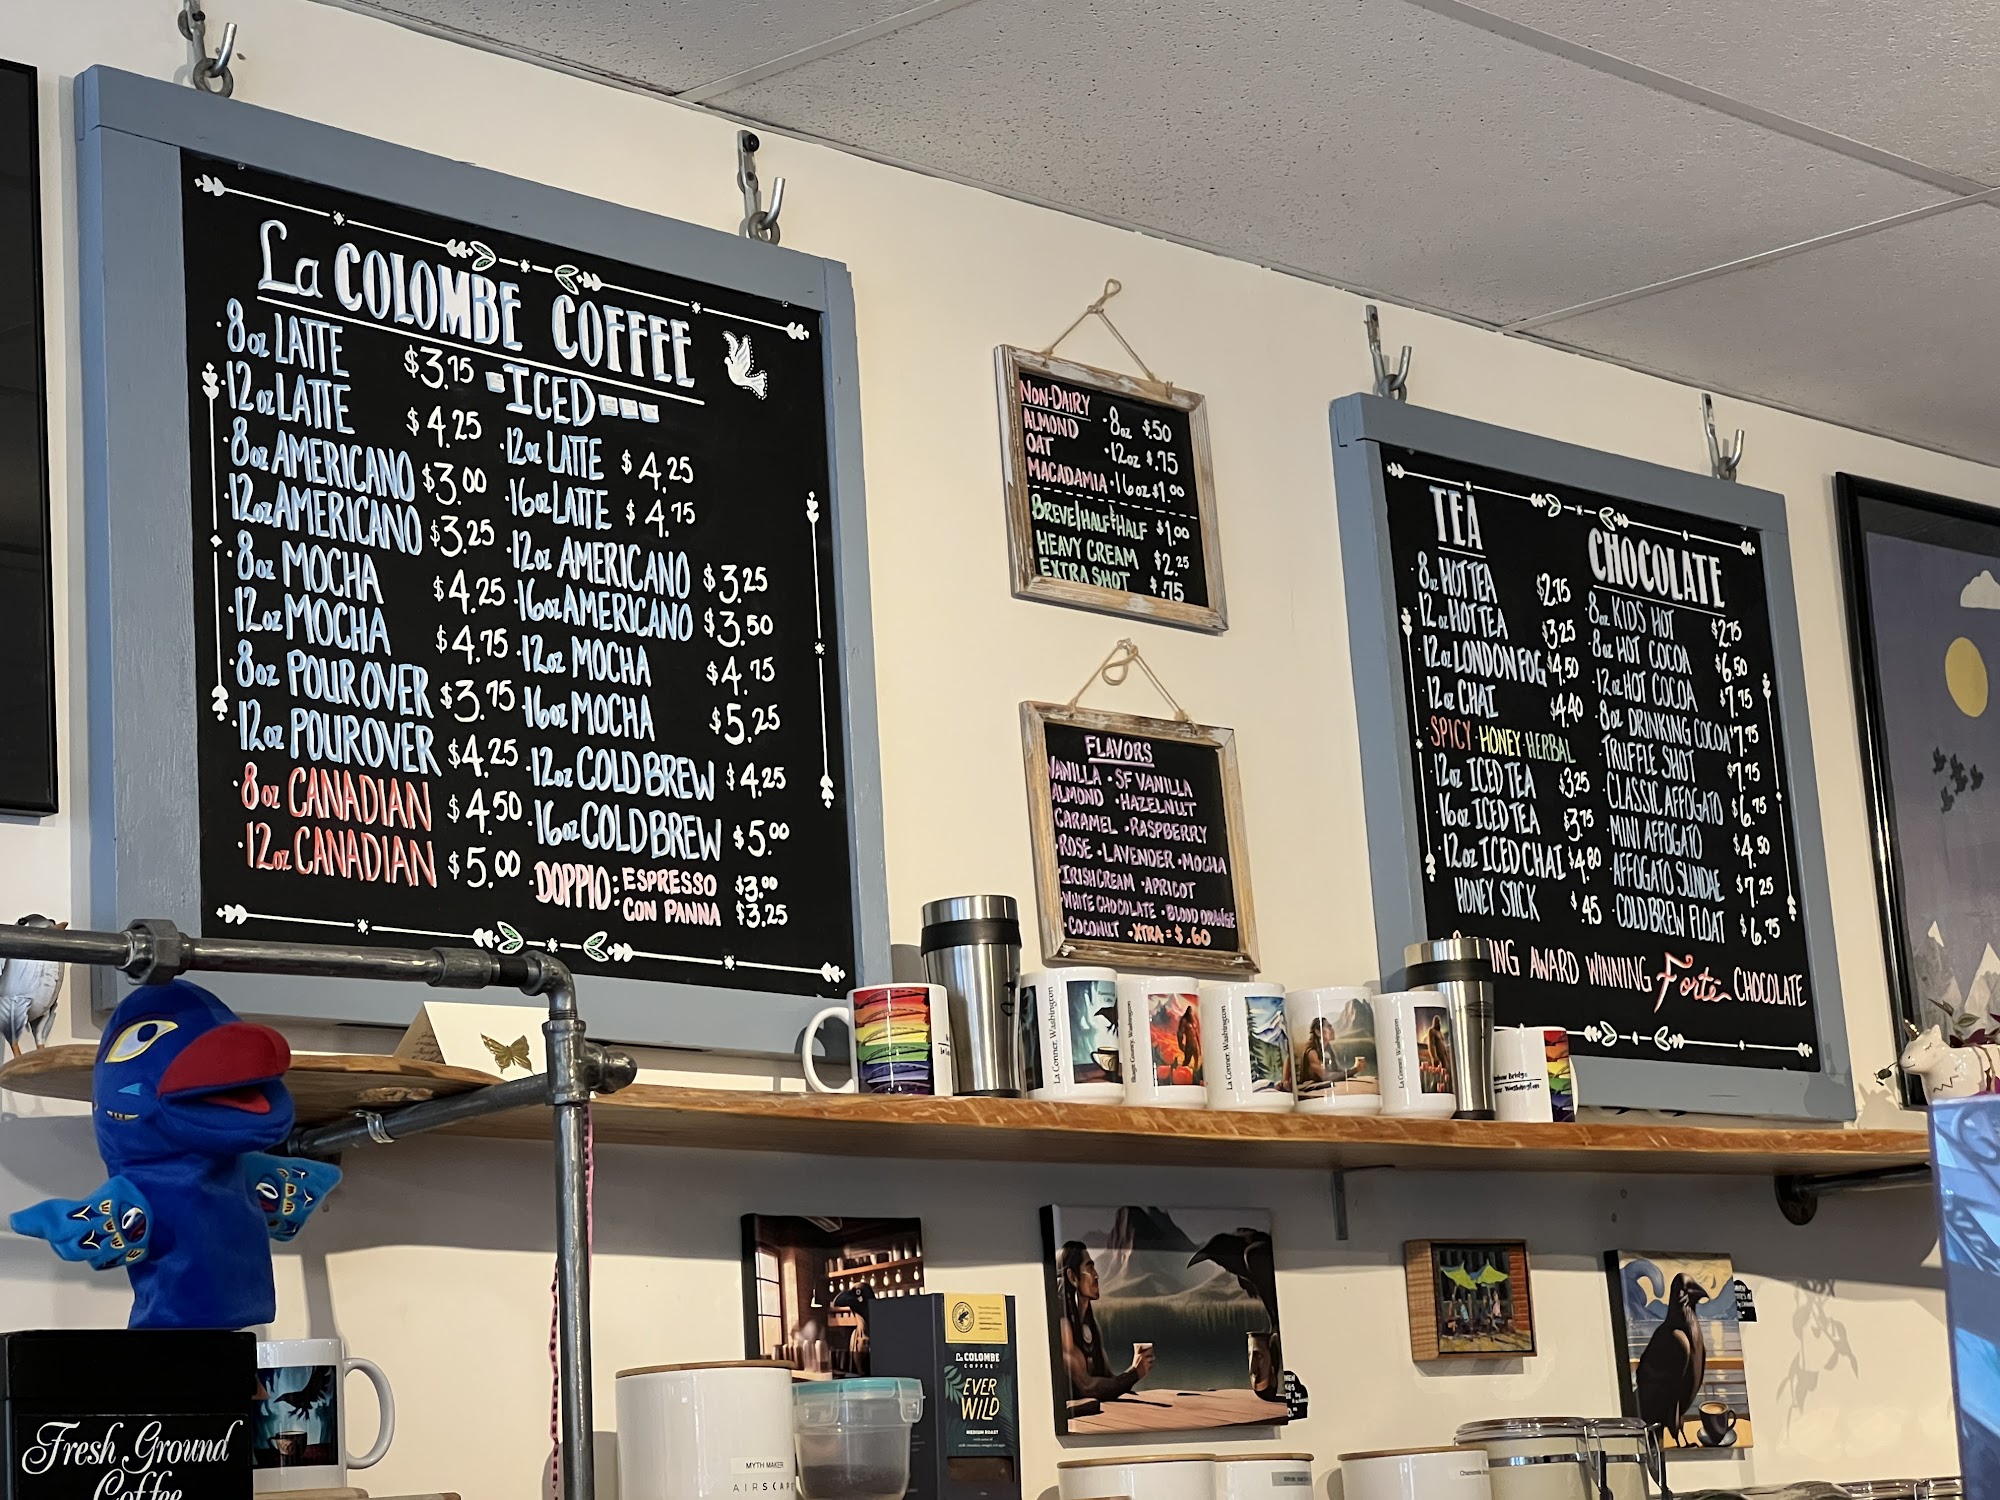 La COLOMBE COFFEE
·8oz LATTE $3.75
·12oz LATTE $4.25
·8oz AMERICANO $3.00
·12oz AMERICANO $3.25
·8oz MOCHA $4.25
·12oz MOCHA $4.75
·8oz POUR OVER $3.75
·12oz POUR OVER $4.25
·8oz CANADIAN $4.50
·12oz CANADIAN $5.00
ICED
·12oz LATTE $4.25
·16oz LATTE $4.75
·12oz AMERICANO $3.25
·16oz AMERICANO $3.50
·12oz MOCHA $4.75
·16oz MOCHA $5.25
·12oz COLD BREW $4.25
·16oz COLD BREW $5.00
·DOPPIO: ESPRESSO $3.00
CON PANNA $3.25
NON-DAIRY
ALMOND ·8oz $.50
OAT ·12oz $.75
MACADAMIA ·16oz $1.00
BREVE/HALF & HALF $1.00
HEAVY CREAM $2.25
EXTRA SHOT $.75
FLAVORS
VANILLA ·SF VANILLA
ALMOND ·HAZELNUT
CARAMEL ·RASPBERRY
·ROSE ·LAVENDER ·MOCHA
·IRISH CREAM ·APRICOT
·WHITE CHOCOLATE ·BLOOD ORANGE
·COCONUT ·XTRA=$.60
TEA
·8oz HOT TEA $2.75
·12oz HOT TEA $3.25
·12oz LONDON FOG $4.50
·12oz CHAI $4.40
SPICY·HONEY·HERBAL
·12oz ICED TEA $3.25
·16oz ICED TEA $3.75
·12oz ICED CHAI $4.80
HONEY STICK $.45
CHOCOLATE
·8oz KIDS HOT $2.75
·8oz HOT COCOA $6.50
·12oz HOT COCOA $7.75
·8oz DRINKING COCOA $7.75
·TRUFFLE SHOT $7.75
·CLASSIC AFFOGATO $6.75
·MINI AFFOGATO $4.50
·AFFOGATO SUNDAE $7.25
·COLD BREW FLOAT $6.75
AWARD WINNING Forte CHOCOLATE
La Conner, Washington
Skagit County, Washington
La Conner, Washington
La Conner, Washington
La COLOMBE
COFFEE
EVER
WILD
MEDIUM ROAST
MYTH MAKER
Fresh Ground
Coffee